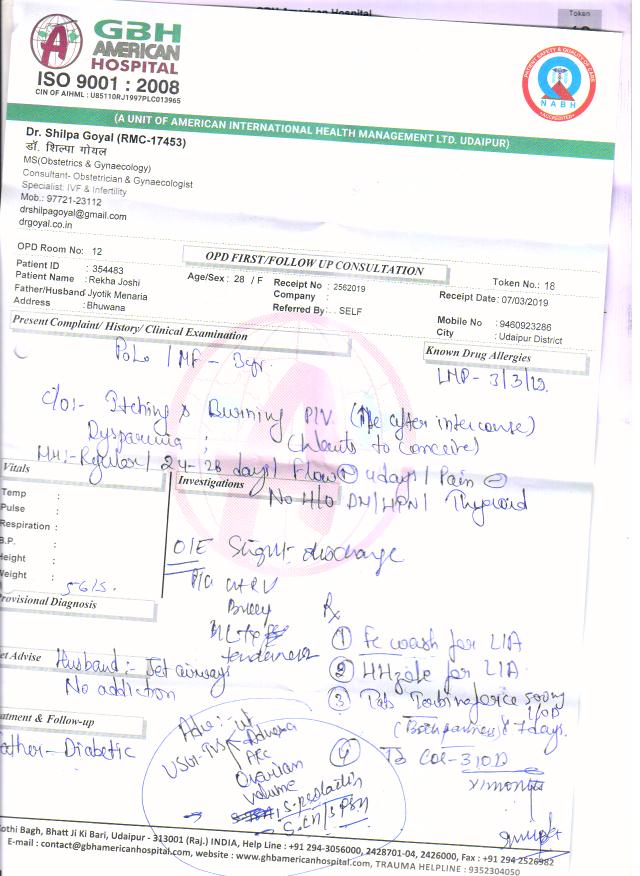 GBH
AMERICAN
HOSPITAL
ISO 9001 : 2008
CIN OF AIHML : U85110RJ1997PLC013965
American Hospital
Token
PATIENT SAFETY & QUALITY OF CARE
NABH
ACCREDITED
(A UNIT OF AMERICAN INTERNATIONAL HEALTH MANAGEMENT LTD. UDAIPUR)
Dr. Shilpa Goyal (RMC-17453)
डॉ. शिल्पा गोयल
MS(Obstetrics & Gynaecology)
Consultant- Obstetrician & Gynaecologist
Specialist: IVF & Infertility
Mob.: 97721-23112
drshilpagoyal@gmail.com
drgoyal.co.in
OPD Room No: 12
OPD FIRST/FOLLOW UP CONSULTATION
Token No.: 18
Patient ID : 354483
Patient Name : Rekha Joshi
Age/Sex : 28 / F
Receipt No : 2562019
Receipt Date: 07/03/2019
Father/Husband Jyotik Menaria
Company :
Address : Bhuwana
Referred By : SELF
Mobile No : 9460923286
City : Udaipur District
Present Complaint/ History/ Clinical Examination
Known Drug Allergies
PoLo / MF - 3yr.
LMP - 3/3/19.
C/O:- Itching & Burning P/V (after intercourse)
(Wants to conceive)
MH:- Regular / 24-28 days / Flow 4days / Pain
Vitals
Investigations
No H/o DM / HPN / Thyroid
Temp :
Pulse :
Respiration :
B.P. :
Height :
Weight : 56.5.
O/E Slight discharge
Bulky
tenderness
Provisional Diagnosis
Rx
① wash for LIA
② HHzole for LIA
③ Tab Terbinaforce 500mg
1/OD
(Both partners) x 7days.
④
Diet Advise
Husband:- Jet airways
No addiction
Treatment & Follow-up
Father - Diabetic
Adv:
USG-TVS
Adnexa
AFC
Ovarian
volume
S. prolactin
x 1 month
Kothi Bagh, Bhatt Ji Ki Bari, Udaipur - 313001 (Raj.) INDIA, Help Line : +91 294-3056000, 2428701-04, 2426000, Fax : +91 294 2526982
E-mail : contact@gbhamericanhospital.com, website : www.gbhamericanhospital.com, TRAUMA HELPLINE : 9352304050